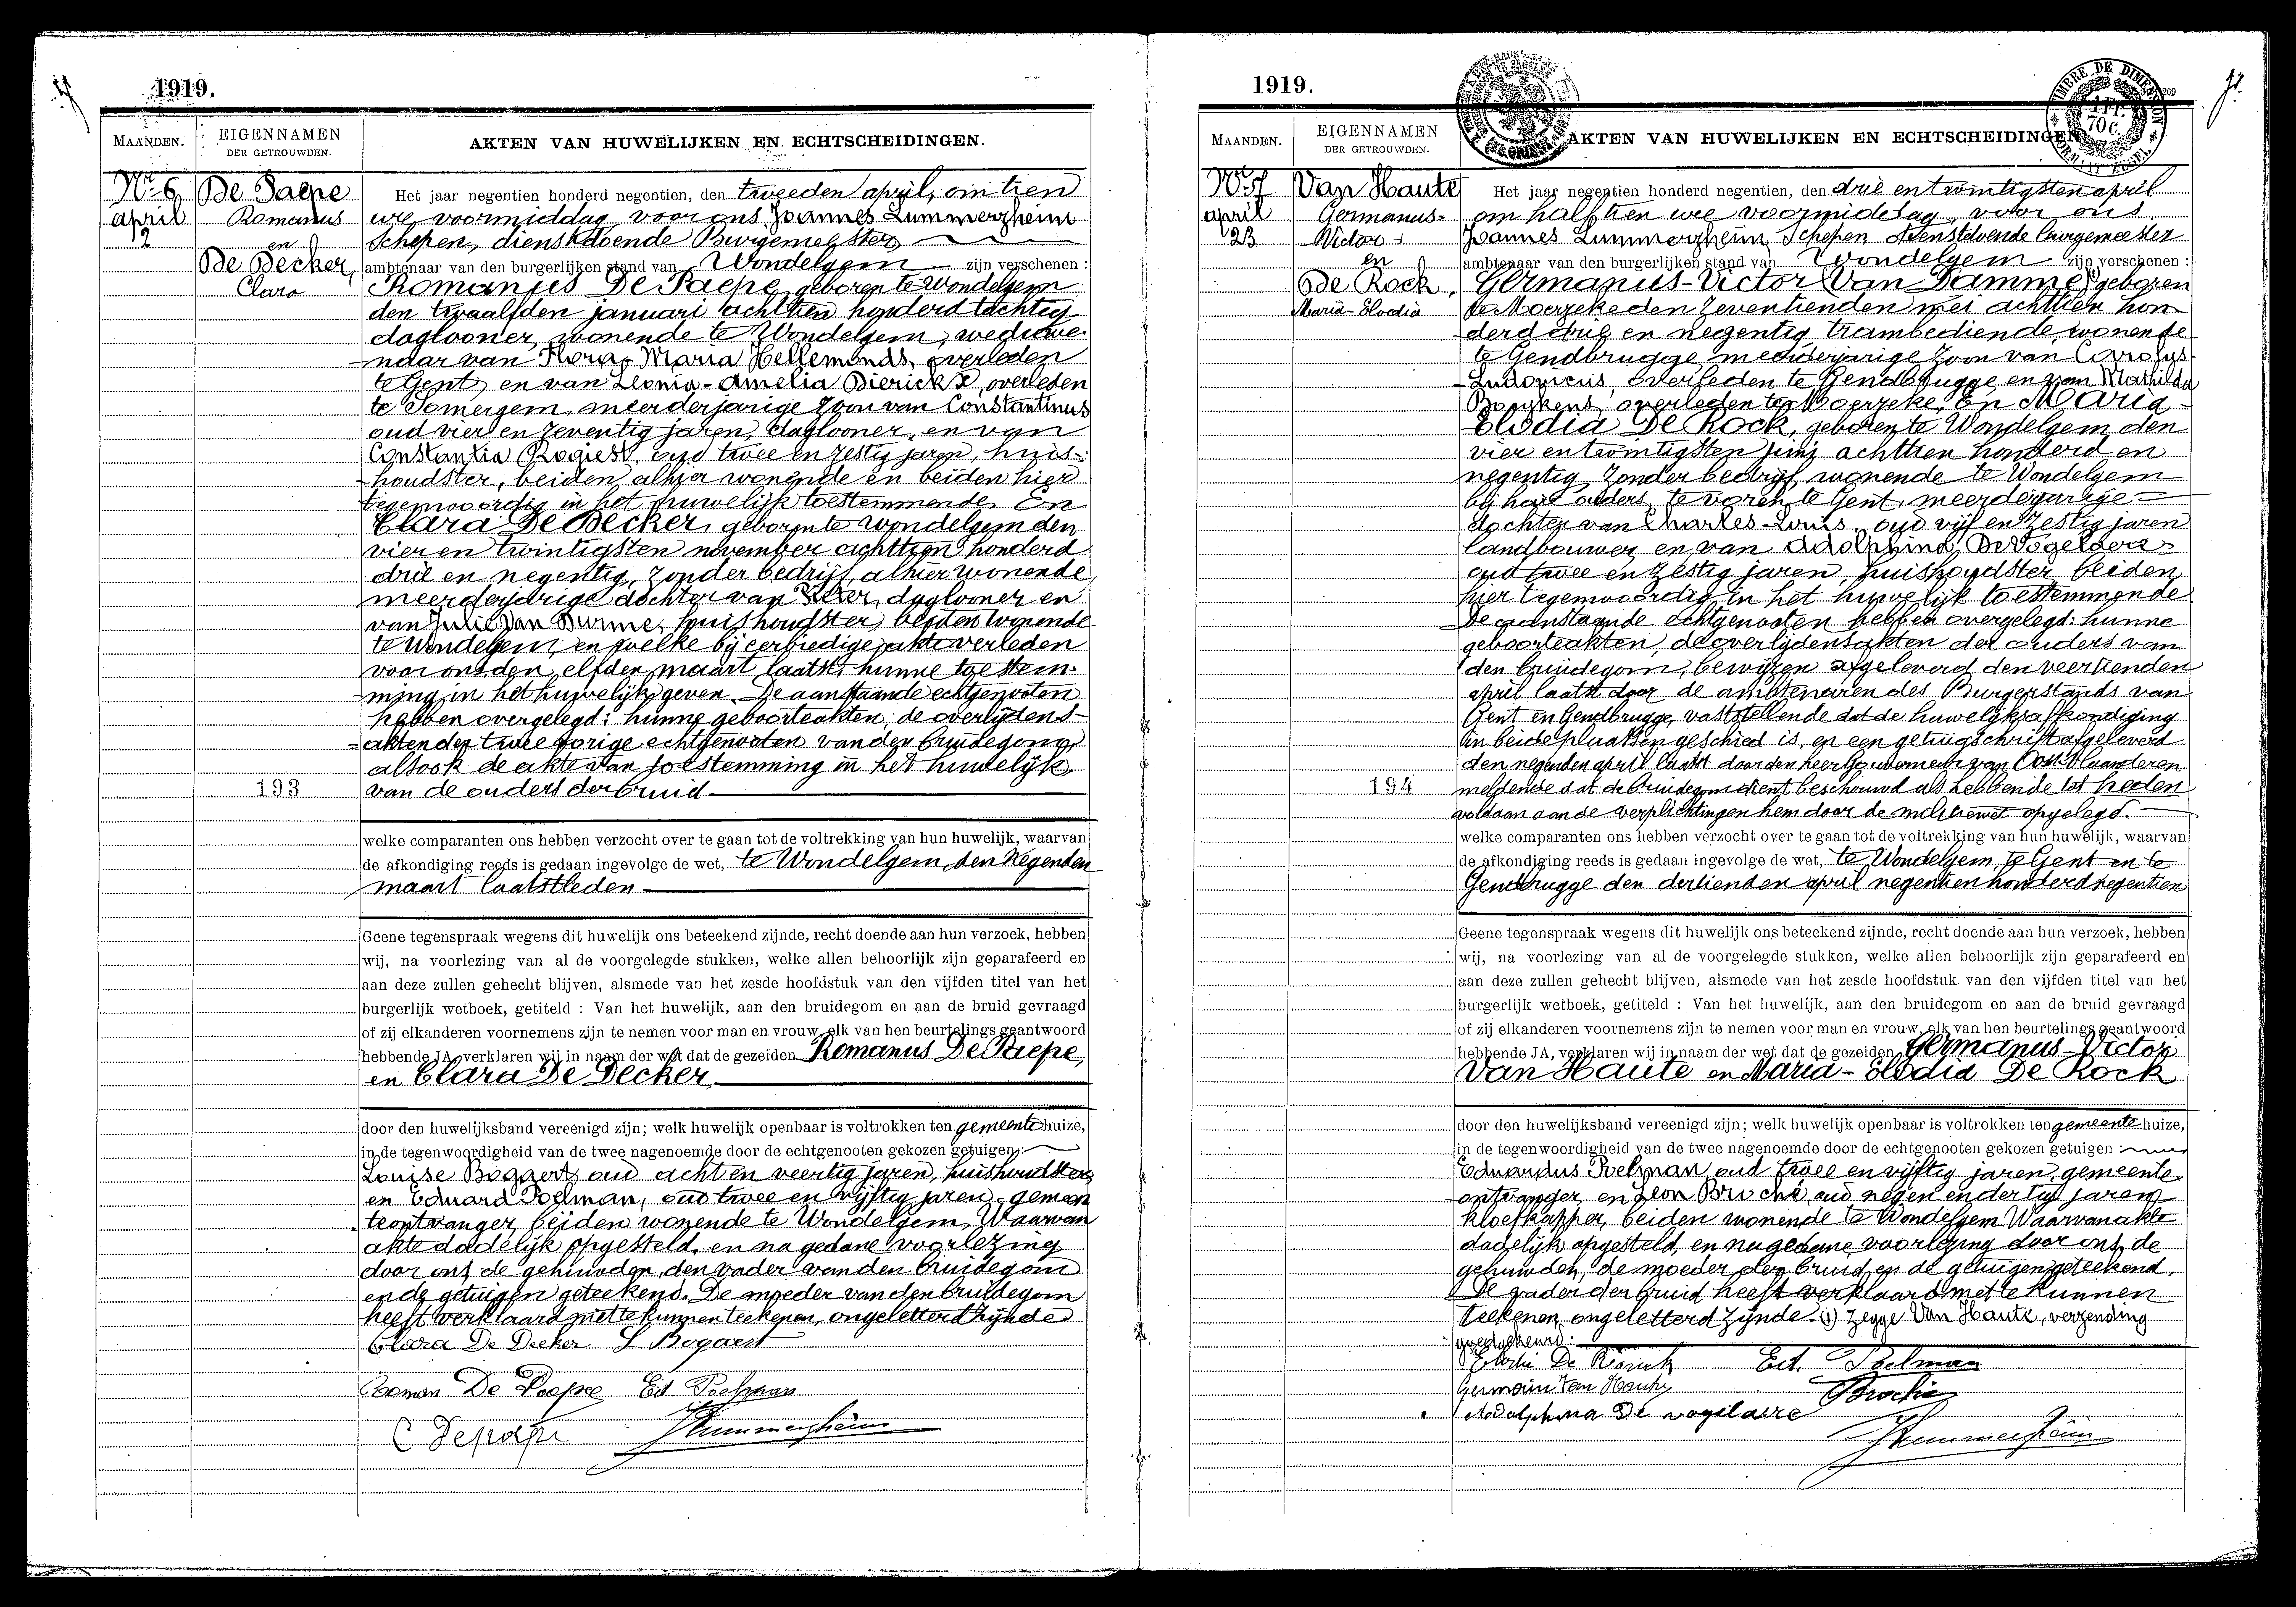 1919.
MAANDEN.
EIGENNAMEN
DER GETROUWDEN.
AKTEN VAN HUWELIJKEN EN ECHTSCHEIDINGEN.
Nr 6
april
2
De Paepe
Romanus
en
De Decker,
Clara
193
Het jaar negentien honderd negentien, den tweeden april, om tien
ure voormiddag voor ons Joannes Lummerzheim
Schepen, dienstdoende Burgemeester
ambtenaar van den burgerlijken stand van Wondelgem zijn verschenen :
Romanus De Paepe, geboren te Wondelgem
den twaalfden januari achttien honderd tachtig
daglooner, wonende te Wondelgem, weduwe-
naar van Flora-Maria Hellemonds, overleden
te Gent, en van Leonia-Amelia Dierickx, overleden
te Somergem, meerderjarige zoon van Constantinus
oud vier en zeventig jaren, daglooner, en van
Constantia Rogiest, oud twee en zestig jaren, huis-
houdster, beiden alhier wonende en beiden hier
tegenwoordig in het huwelijk toestemmende. En
Clara De Decker, geboren te Wondelgem den
vier en twintigsten november achttien honderd
drie en negentig, zonder bedrijf, alhier wonende,
meerderjarige dochter van Peter, daglooner en
van Julie Van Durme, huishoudster, beiden wonende
te Wondelgem, en welke bij eerbiedige akte verleden
voor ons den elfden maart laatst, hunne toestem-
ming in het huwelijk geven. De aanstaande echtgenooten
hebben overgelegd: hunne geboorteakten, de overlijdens-
akten der twee vorige echtgenooten van den bruidegom,
alsook de akte van toestemming in het huwelijk
van de ouders der bruid
welke comparanten ons hebben verzocht over te gaan tot de voltrekking van hun huwelijk, waarvan
de afkondiging reeds is gedaan ingevolge de wet, te Wondelgem, den negenden
maart laatstleden
Geene tegenspraak wegens dit huwelijk ons beteekend zijnde, recht doende aan hun verzoek, hebben
wij, na voorlezing van al de voorgelegde stukken, welke allen behoorlijk zijn geparafeerd en
aan deze zullen gehecht blijven, alsmede van het zesde hoofdstuk van den vijfden titel van het
burgerlijk wetboek, getiteld : Van het huwelijk, aan den bruidegom en aan de bruid gevraagd
of zij elkanderen voornemens zijn te nemen voor man en vrouw, elk van hen beurtelings geantwoord
hebbende JA, verklaren wij in naam der wet dat de gezeiden Romanus De Paepe,
en Clara De Decker
door den huwelijksband vereenigd zijn; welk huwelijk openbaar is voltrokken ten gemeente huize,
in de tegenwoordigheid van de twee nagenoemde door de echtgenooten gekozen getuigen :
Louise Bogaert, oud acht en veertig jaren, huishoudster
en Eduard Poelman, oud twee en vijftig jaren, gemeen
teontvanger, beiden wonende te Wondelgem. Waarvan
akte dadelijk opgesteld, en na gedane voorlezing
door ons de gehuwden, den vader van den bruidegom
en de getuigen geteekend. De moeder van den bruidegom
heeft verklaard niet te kunnen teekenen, ongeletterd zijnde
Clara De Decker L Bogaert
Roman De Paepe Ed. Poelman
C Depape JLummerzheim
1919.
MAANDEN.
EIGENNAMEN
DER GETROUWDEN.
AKTEN VAN HUWELIJKEN EN ECHTSCHEIDINGEN.
TIMBRE DE DIMENSION
1 FR.
70 C.
Nr 7
april
23
Van Haute
Germanus-
Victor
en
De Rock,
Maria-Elodia
194
Het jaar negentien honderd negentien, den drie en twintigsten april
om half tien ure voormiddag, voor ons
Joannes Lummerzheim, Schepen dienstdoende burgemeester
ambtenaar van den burgerlijken stand van Wondelgem zijn verschenen :
Germanus-Victor Van Damme (1) geboren
te Moerzeke den zeventienden mei achttien hon-
derd drie en negentig, trambediende, wonende
te Gendbrugge, meerderjarige zoon van Carolus-
Ludovicus, overleden te Gendbrugge en van Mathilda
overleden te Moerzeke. En Maria-
Elodia De Rock, geboren te Wondelgem den
vier en twintigsten juni achttien honderd en
negentig, zonder bedrijf, wonende te Wondelgem
bij hare ouders, te voren te Gent, meerderjarige
dochter van Charles-Louis, oud vijf en zestig jaren
landbouwer, en van Adolphina De Vogelaere
oud twee en zestig jaren, huishoudster beiden
hier tegenwoordig in het huwelijk toestemmende.
De aanstaande echtgenooten hebben overgelegd: hunne
geboorteakten, de overlijdensakten der ouders van
den bruidegom, bewijzen afgeleverd den veertienden
april laatst door de ambtenaren des Burgerstands van
Gent en Gendbrugge, vaststellende dat de huwelijksafkondiging
in beide plaatsen geschied is, en een getuigschrift afgeleverd
den negenden april laatst door den heer Gouverneur van Oost-Vlaanderen
meldende dat de bruidegom dient beschouwd als hebbende tot heden
voldaan aan de verplichtingen hem door de militiewet opgelegd.
welke comparanten ons hebben verzocht over te gaan tot de voltrekking van hun huwelijk, waarvan
de afkondiging reeds is gedaan ingevolge de wet, te Wondelgem, te Gent en te
Gendbrugge den dertienden april negentien honderd negentien
Geene tegenspraak wegens dit huwelijk ons beteekend zijnde, recht doende aan hun verzoek, hebben
wij, na voorlezing van al de voorgelegde stukken, welke allen behoorlijk zijn geparafeerd en
aan deze zullen gehecht blijven, alsmede van het zesde hoofdstuk van den vijfden titel van het
burgerlijk wetboek, getiteld : Van het huwelijk, aan den bruidegom en aan de bruid gevraagd
of zij elkanderen voornemens zijn te nemen voor man en vrouw, elk van hen beurtelings geantwoord
hebbende JA, verklaren wij in naam der wet dat de gezeiden Germanus-Victor
Van Haute en Maria-Elodia De Rock
door den huwelijksband vereenigd zijn; welk huwelijk openbaar is voltrokken ten gemeente huize,
in de tegenwoordigheid van de twee nagenoemde door de echtgenooten gekozen getuigen :
Eduardus Poelman, oud twee en vijftig jaren, gemeente-
ontvanger, en Leon Broché, oud negen en dertig jaren,
kloefkapper, beiden wonende te Wondelgem. Waarvan akte
dadelijk opgesteld, en na gedane voorlezing door ons, de
gehuwden, de moeder der bruid en de getuigen geteekend.
De vader der bruid heeft verklaard niet te kunnen
teekenen, ongeletterd zijnde. (1) Zegge Van Haute, verzending
goedgekeurd.
Elodie De Ed. Poelman
Germain Van Haute Broché
Adolphina De vogelaere
JLummerzheim